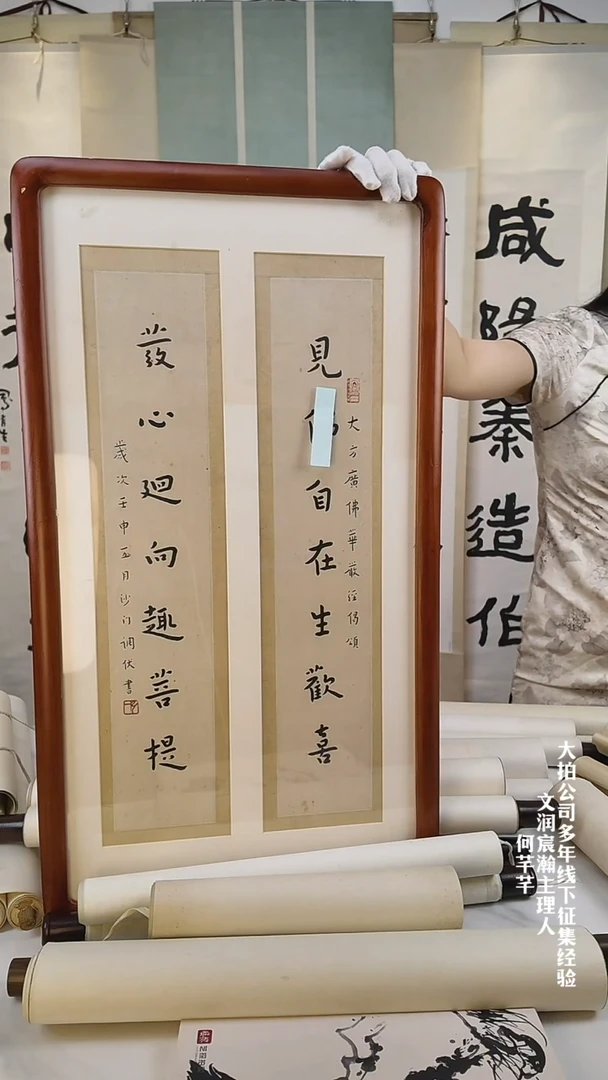 見佛自在生歡喜
大方廣佛華嚴經偈頌
發心迴向趣菩提
歲次壬申五月沙門調伏書
咸陽秦造伯
大拍公司多年线下征集经验
文润宸瀚主理人
何芊芊